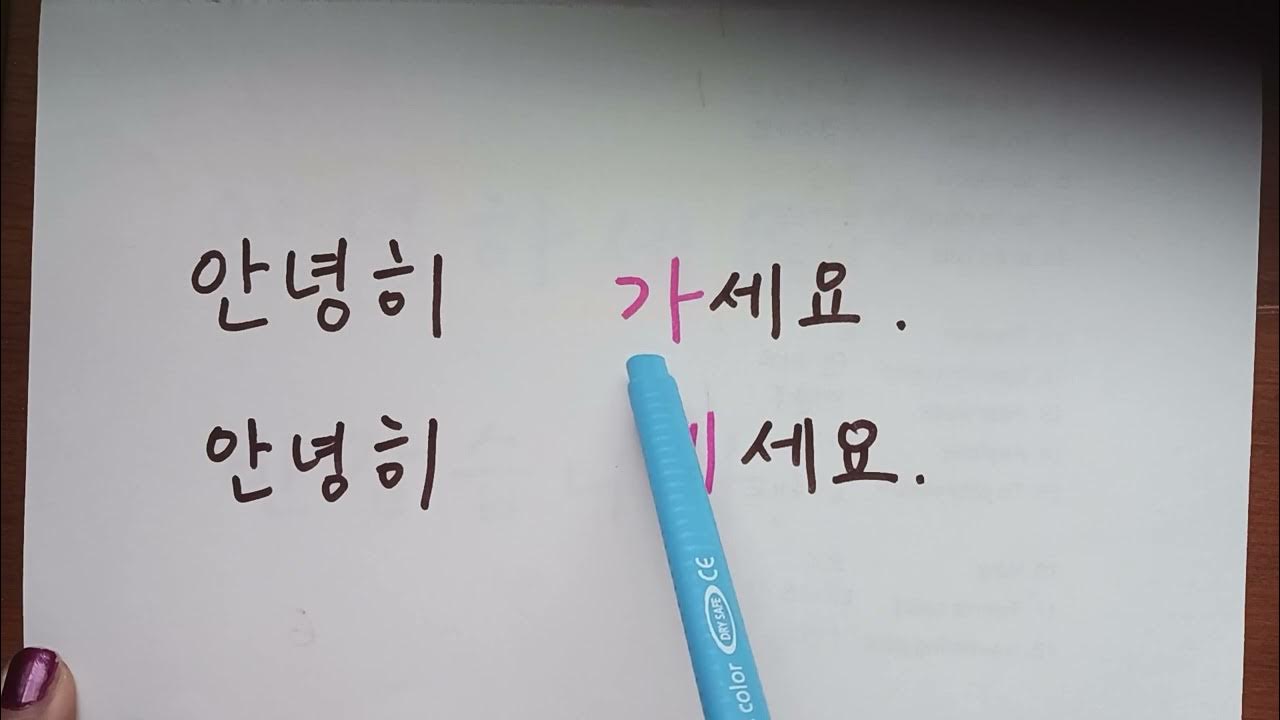 안녕히 가세요.
안녕히 세요.
color DRY SAFE CE